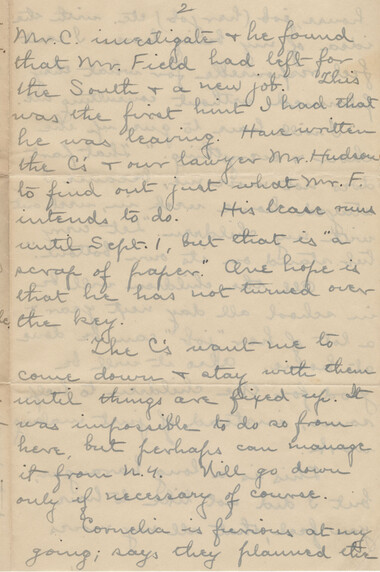 2
Mr. C. investigate & he found
that Mr. Field had left for
the South & a new job. This
was the first hint I had that
he was leaving. Have written
the C's & our lawyer Mr. Hudson
to find out just what Mr. F.
intends to do. His lease runs
until Sept. 1, but that is "a
scrap of paper." One hope is
that he has not turned over
the key.
The C's want me to
come down & stay with them
until things are fixed up. It
was impossible to do so from
here, but perhaps can manage
it from N.Y. Will go down
only if necessary of course.
Cornelia is furious at my
going; says they planned the